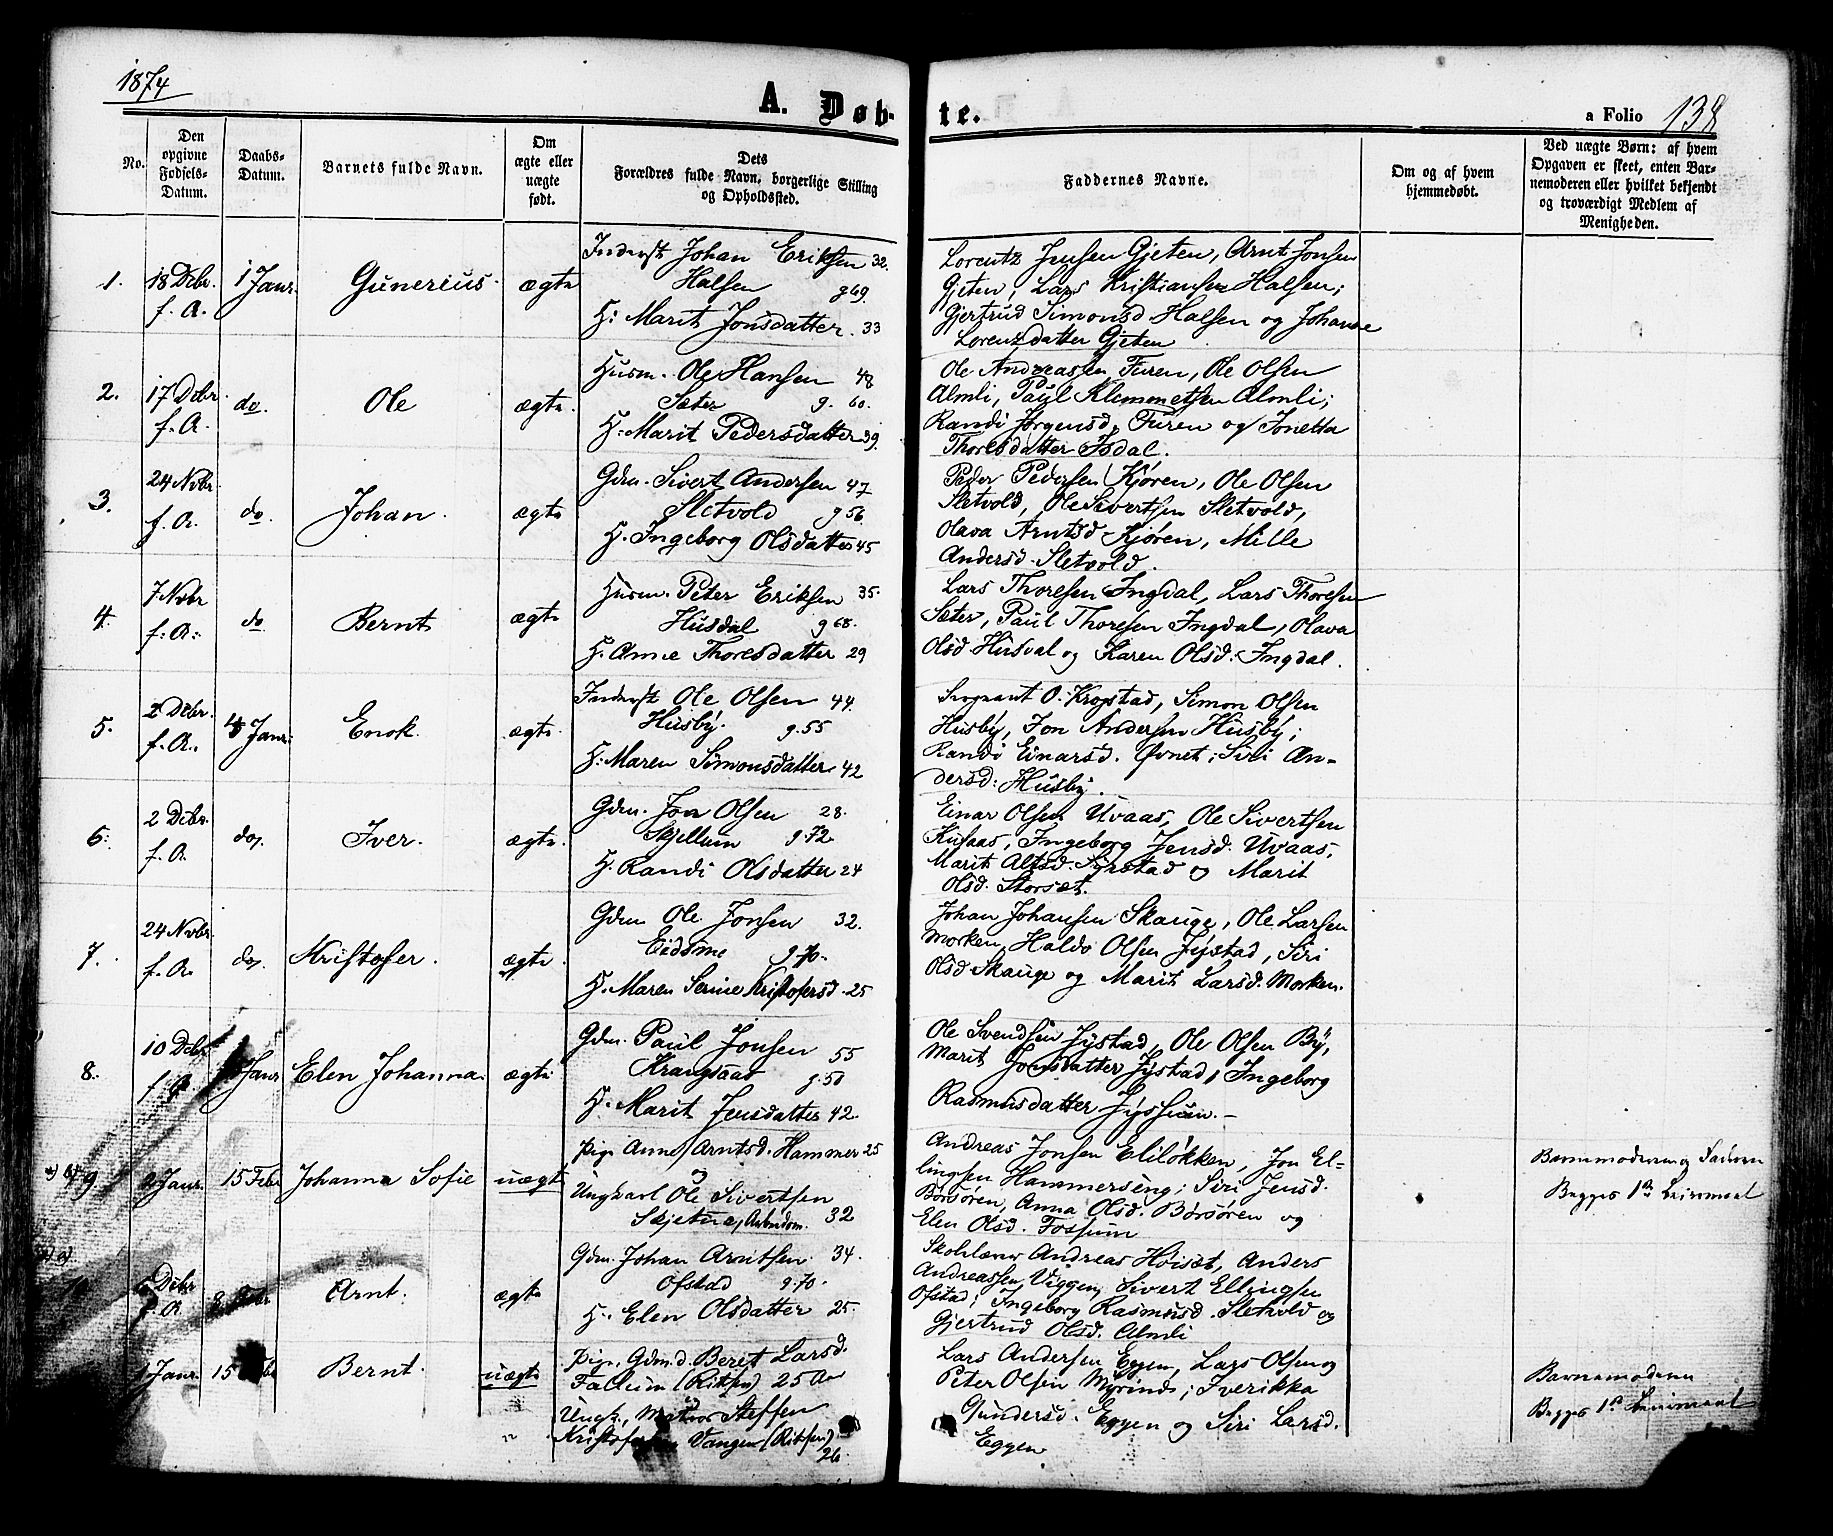 1874
A. Døb-
te.
a Folio 138
No.
Den opgivne Fødsels-Datum.
Daabs-Datum.
Barnets fulde Navn.
Om ægte eller uægte født.
Dets Forældres fulde Navn, borgerlige Stilling og Opholdssted.
Faddernes Navne.
Om og af hvem hjemmedøbt.
Ved uægte Børn: af hvem Opgaven er skeet, enten Barnemoderen eller hvilket bekjendt og troværdigt Medlem af Menigheden.
1. 18 Dcbr. f. A. 1 Janr. Gunerius. ægte
Inderst Johan Eriksen 32.
Halsen g 69.
H: Marit Jonsdatter. 33
Lorentz Jensen Gjeten, Arnt Jonsen
Gjeten, Lars Kristiansen Halsen;
Gjertrud Simonsd Halsen og Johanne
Lorentzdatter Gjeten
2. 17 Dcbr f. A. do. Ole ægte.
Husm. Ole Hansen 48
Sæter g. 60.
H. Marit Pedersdatter 39.
Ole Andreassen Furen, Ole Olsen
Almli, Paul Klemmetsen Almli;
Randi Jørgensd. Furen og Jonetta
Thoresdatter Isdal.
3. 24 Nvbr f. A. do. Johan. ægte
Gdm. Sivert Andersen 47
Sletvold g 56.
H. Ingeborg Olsdatter 45
Peder Pedersen Kjøren, Ole Olsen
Sletvold, Ole Sivertsen Sletvold,
Olava Arntsd Kjøren, Mille
Andersd. Sletvold.
4. 7 Nvbr f. A. do Bernt ægte
Husm. Peter Eriksen 35.
Husdal g 68.
H. Anne Thoresdatter 29
Lars Thoresen Ingdal, Lars Thoresen
Sæter, Paul Thoresen Ingdal, Olava
Olsd. Husdal og Karen Olsd. Ingdal.
5. 2 Dcbr. f. A. Janr. Enok. ægte.
Inderst Ole Olsen 44.
Husby. g. 55
H. Maren Simonsdatter 42
O. Krogstad, Simon Olsen
Husby, Jon Andersen Husby;
Randi Einarsd. Øvnet; Siri An-
dersd: Husby.
6. 2 Dcbr. f. A. do. Iver. ægte.
Gdm. Jon Olsen 28.
Skjellum g 72
H. Randi Olsdatter 24
Einar Olsen Uvaas, Ole Sivertsen
Kusaas, Ingeborg Jensd. Uvaas,
Marit Syrstad og Marit
Olsd. Storsæt.
7. 24 Nvbr. f. A. do. Kristofer. ægte
Gdm Ole Jonsen 32.
Eidsmo g 70.
H. Maren Serine Kristofersd. 25
Johan Johansen Skauge, Ole Larsen
Morken, Haldo Olsen Jystad, Siri
Olsd Skauge og Marit Larsd. Morken.
8. 10 Dcbr f. A. Janr Elen Johanna. ægte
Gdm. Paul Jonsen 55
Krangsaas g. 50
H. Marit Jensdatter 42.
Ole Svendsen Jystad, Ole Olsen By,
Marit Jonsdatter Jystad, Ingeborg
Rasmusdatter
9 2 Janr. 15 Febr Johanna Sofie uægte
Pige Anne Arntsd. Hammer 25
og
Ungkarl Ole Sivertsen
Skjetne, Arbeidsm. 32
Andreas Jonsen Eliløkken, Jon El-
lingsen Hammerseng; Siri Jensd.
Børsøren, Anna Olsd. Børsøren og
Elen Olsd. Fossum
Barnemoderen og Faderen
Begges 1ste Leiermaal
10 Dcbr f. A. Febr Arnt. ægte
Gdm. Johan Arntsen. 34.
Ofstad g 70.
H. Elen Olsdatter 25.
Skolelærer Andreas Høiset, Anders
Andreassen Viggen, Sivert Ellingsen
Ofstad; Ingeborg Rasmusd. Sletvold og
Gjertrud Olsd. Almli
1 Janr. 15 Bernt. uægte
Pige, Gdm.d. Berit Larsd.
(Ritsen) 25 Aar
og
Ungk. Steffen
Vangen (Ritsen) 26
Lars Andersen Eggen, Lars Olsen og
Peter Olsen Myrind; Iverikka
Gundersd. Eggen og Siri Larsd.
Eggen
Barnemoderen
Begges 1ste Leiermaal